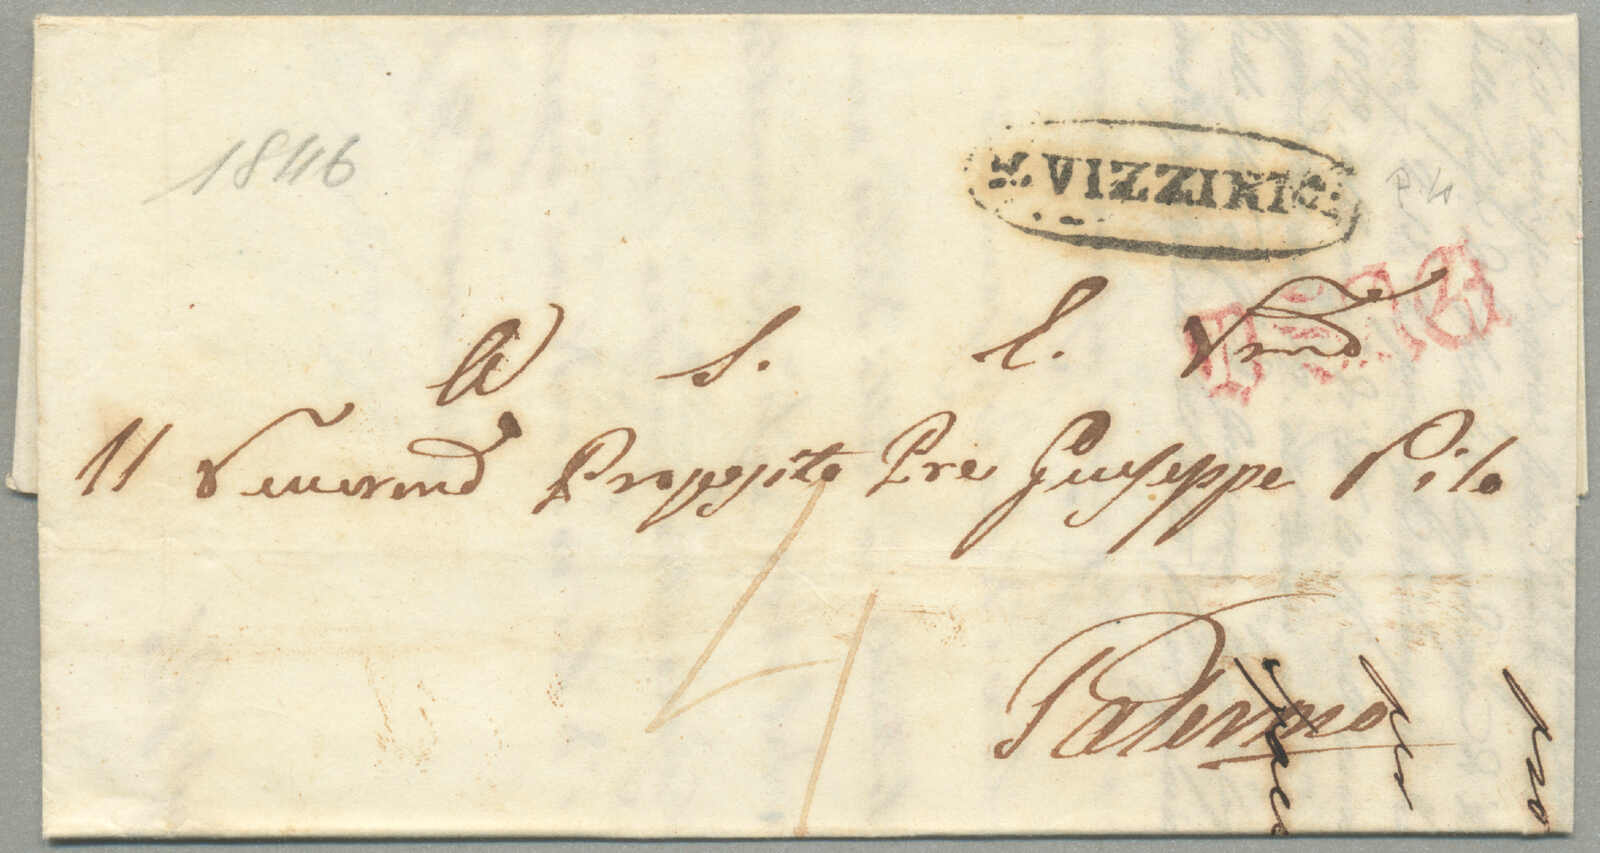 1846
VIZZINI
A S. E. Rmo
Il Reverendo Preposito Pre Giuseppe Pilo
4
Palermo